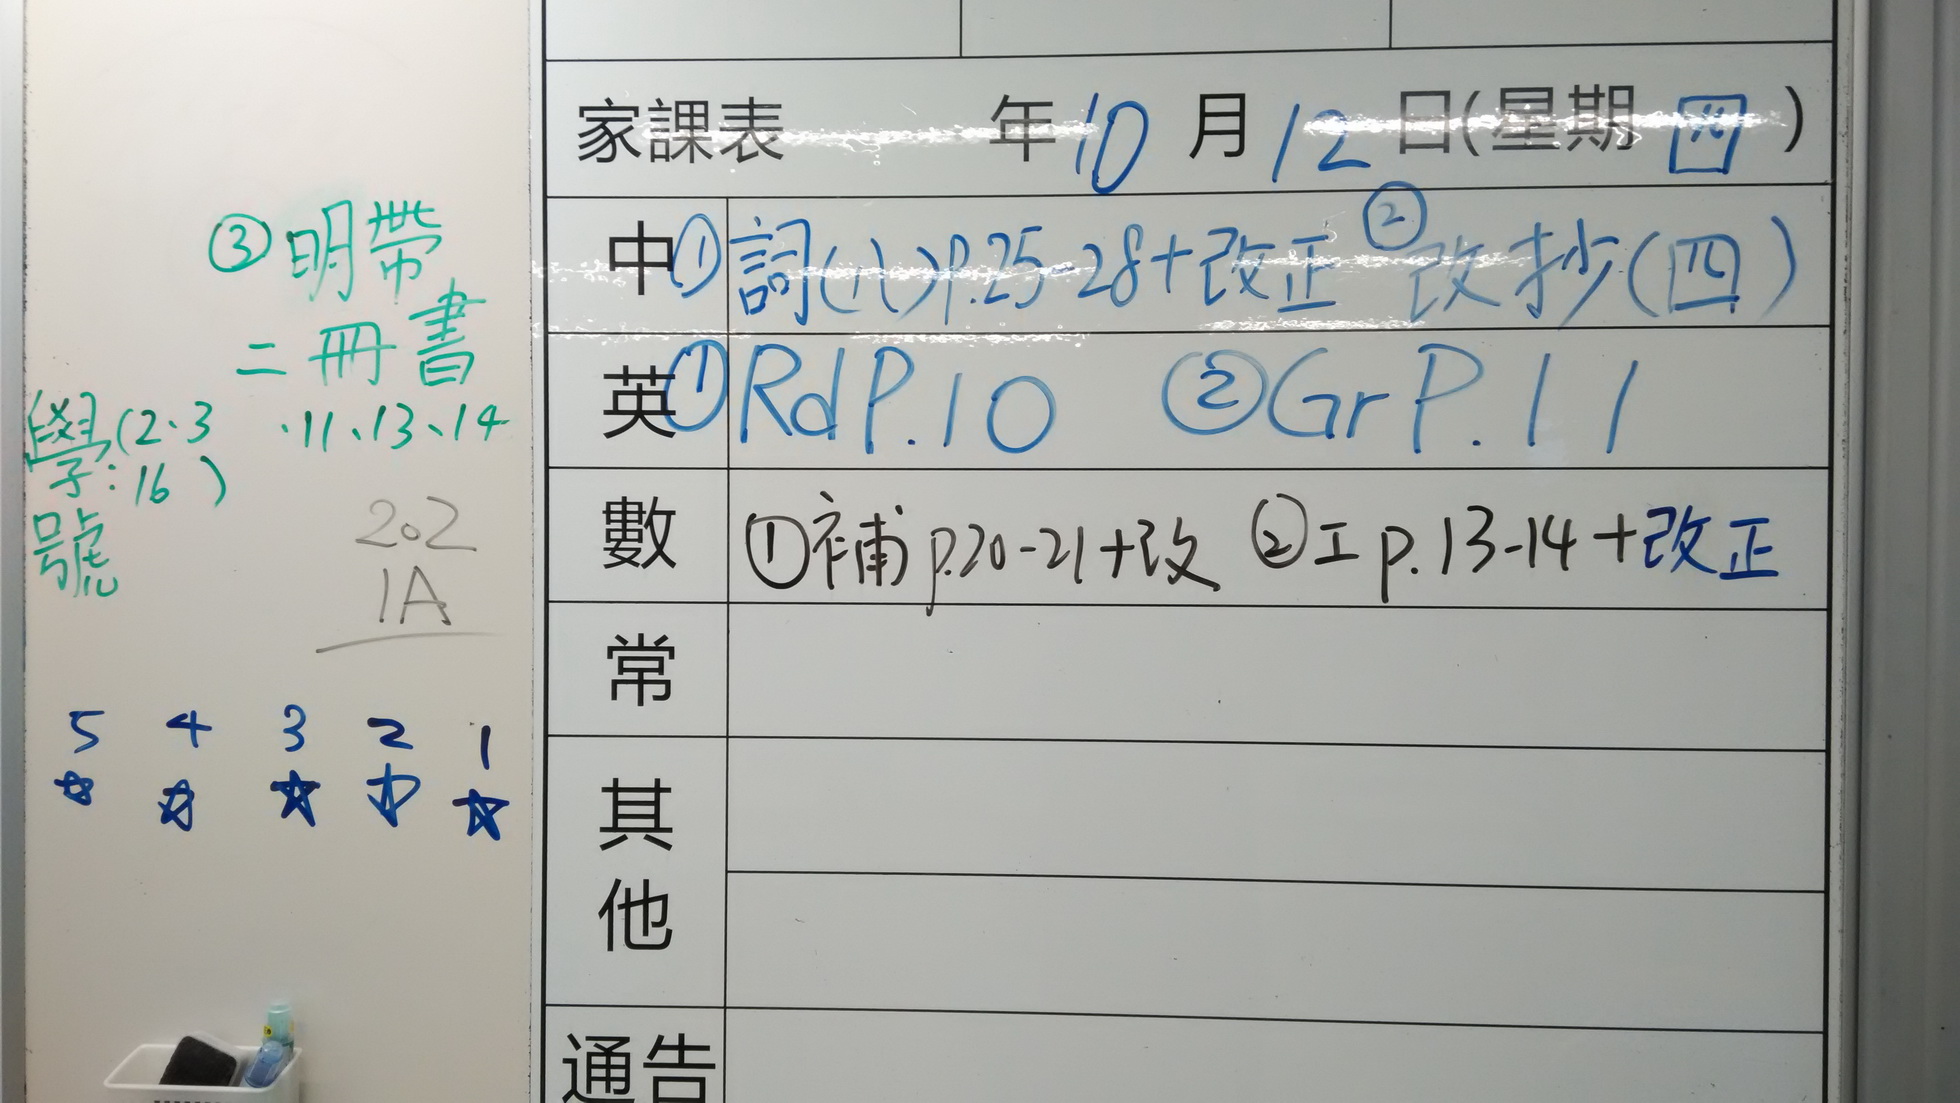 家課表 年10月12日(星期四)
中 ①詞(八)P.25-28+改正 ②改抄(四)
英 ①Rd P.10 ②Gr P.11
數 ①補 p.20-21+改 ②工 p.13-14+改正
常
其他
通告
③明帶
二冊書
學(2、3、11、13、14
子:16)
號
202
1A
5 4 3 2 1